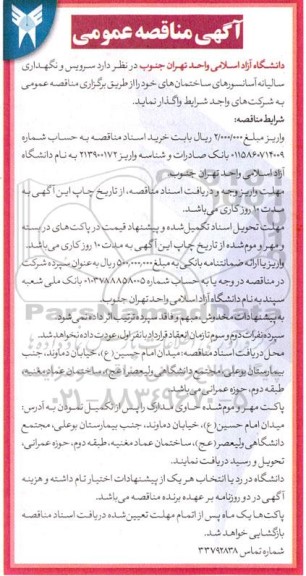 آگهی مناقصه عمومی
دانشگاه آزاد اسلامی واحد تهران جنوب در نظر دارد سرویس و نگهداری
سالیانه آسانسورهای ساختمان های خود را از طریق برگزاری مناقصه عمومی
به شرکت های واجد شرایط واگذار نماید.
شرایط مناقصه:
واریز مبلغ ۲/۰۰۰/۰۰۰ ریال بابت خرید اسناد مناقصه به حساب شماره
۰۱۱۵۸۶۰۷۱۴۰۰۹ بانک صادرات و شناسه واریز ۲۱۳۹۰۰۱۷۲ به نام دانشگاه
آزاد اسلامی واحد تهران جنوب
مهلت واریز وجه و دریافت اسناد مناقصه، از تاریخ چاپ این آگهی به
مدت ۱۰ روز کاری می باشد.
مهلت تحویل اسناد تکمیل شده و پیشنهاد قیمت در پاکت های در بسته
و مهر و موم شده از تاریخ چاپ این آگهی به مدت ۱۰ روز کاری می باشد.
واریز یا ارائه ضمانتنامه بانکی به مبلغ ۵۰۰،۰۰۰،۰۰۰ ریال به عنوان سپرده شرکت
در مناقصه در وجه یا به حساب شماره ۰۱۰۳۷۸۸۸۵۸۰۰۵ بانک ملی شعبه
سپند به نام دانشگاه آزاد اسلامی واحد تهران جنوب
به پیشنهادات مخدوش، مبهم و فاقد سپرده ترتیب اثر داده نمی شود.
سپرده نفرات دوم و سوم تا زمان انعقاد قرارداد با نفر اول، عودت داده نخواهد شد.
محل دریافت اسناد مناقصه: میدان امام حسین (ع)، خیابان دماوند، جنب
بیمارستان بوعلی، مجتمع دانشگاهی ولیعصر (عج)، ساختمان عماد مغنیه
طبقه دوم، حوزه عمرانی می باشد.
پاکت مهر و موم شده حاوی مدارک را پس از تکمیل نمودن به آدرس:
میدان امام حسین (ع)، خیابان دماوند، جنب بیمارستان بوعلی، مجتمع
دانشگاهی ولیعصر (عج)، ساختمان عماد مغنیه، طبقه دوم، حوزه عمرانی،
تحویل و رسید دریافت نمایند.
دانشگاه در رد یا انتخاب هر یک از پیشنهادات اختیار تام داشته و هزینه
آگهی در دو روزنامه بر عهده برنده مناقصه می باشد.
پاکت ها یک ماه پس از اتمام مهلت تعیین شده دریافت اسناد مناقصه
بازگشایی خواهد شد.
شماره تماس ۳۳۷۹۲۸۳۸
۰۲۱-۸۸۳۴۹۶۷۰-۵